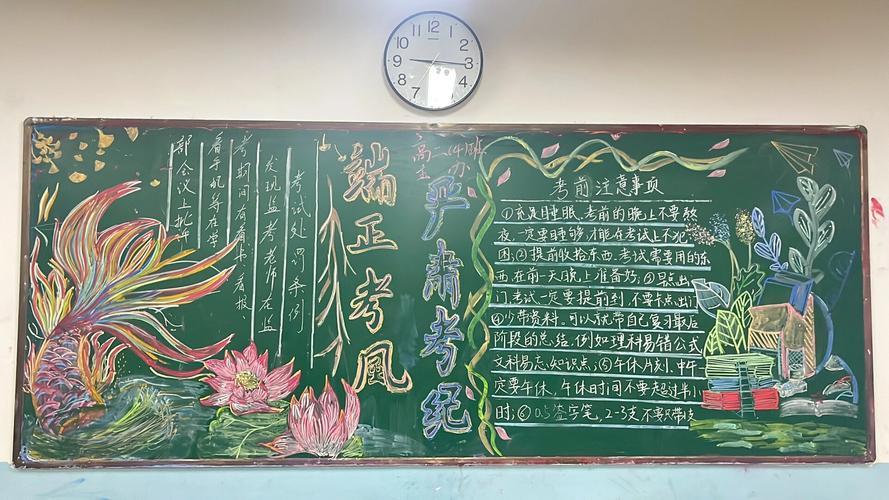 12
11
1
10
2
9
3
8
4
7
5
6
高二(4)班
主办
端正考风
严肃考纪
考试处罚条例
发现监考老师在监
考期间有看书、看报
看手机等在学
部会议上批评
考前注意事项
①充足睡眠,考前的晚上不要熬
夜,一定要睡够,才能在考试上不犯
困;②提前收拾东西,考试需要用的东
西,在前一天晚上准备好;③早点出
门,考试一定要提前到,不要卡点出门
④少带资料,可以就带自己复习最后
阶段的总结,例如理科易错公式
文科易忘知识点;⑤午休片刻,中午一
定要午休,午休时间不要超过半小
时;⑥0.5签字笔,2-3支,不要只带1支